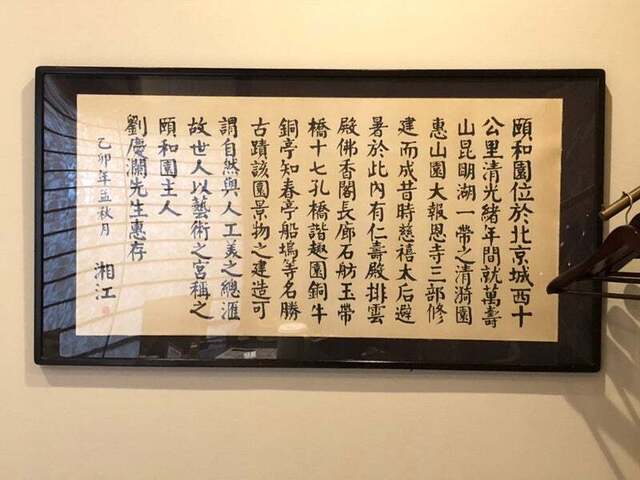 頤和園位於北京城西十
公里清光緒年間就萬壽
山昆明湖一帶之清漪園
惠山園大報恩寺三部修
建而成昔時慈禧太后避
暑於此內有仁壽殿排雲
殿佛香閣長廊石舫玉帶
橋十七孔橋諧趣園銅牛
銅亭知春亭船塢等名勝
古蹟該園景物之建造可
謂自然與人工美之總滙
故世人以藝術之宮稱之
頤和園主人
劉慶瀾先生惠存
乙卯年孟秋月 湘江